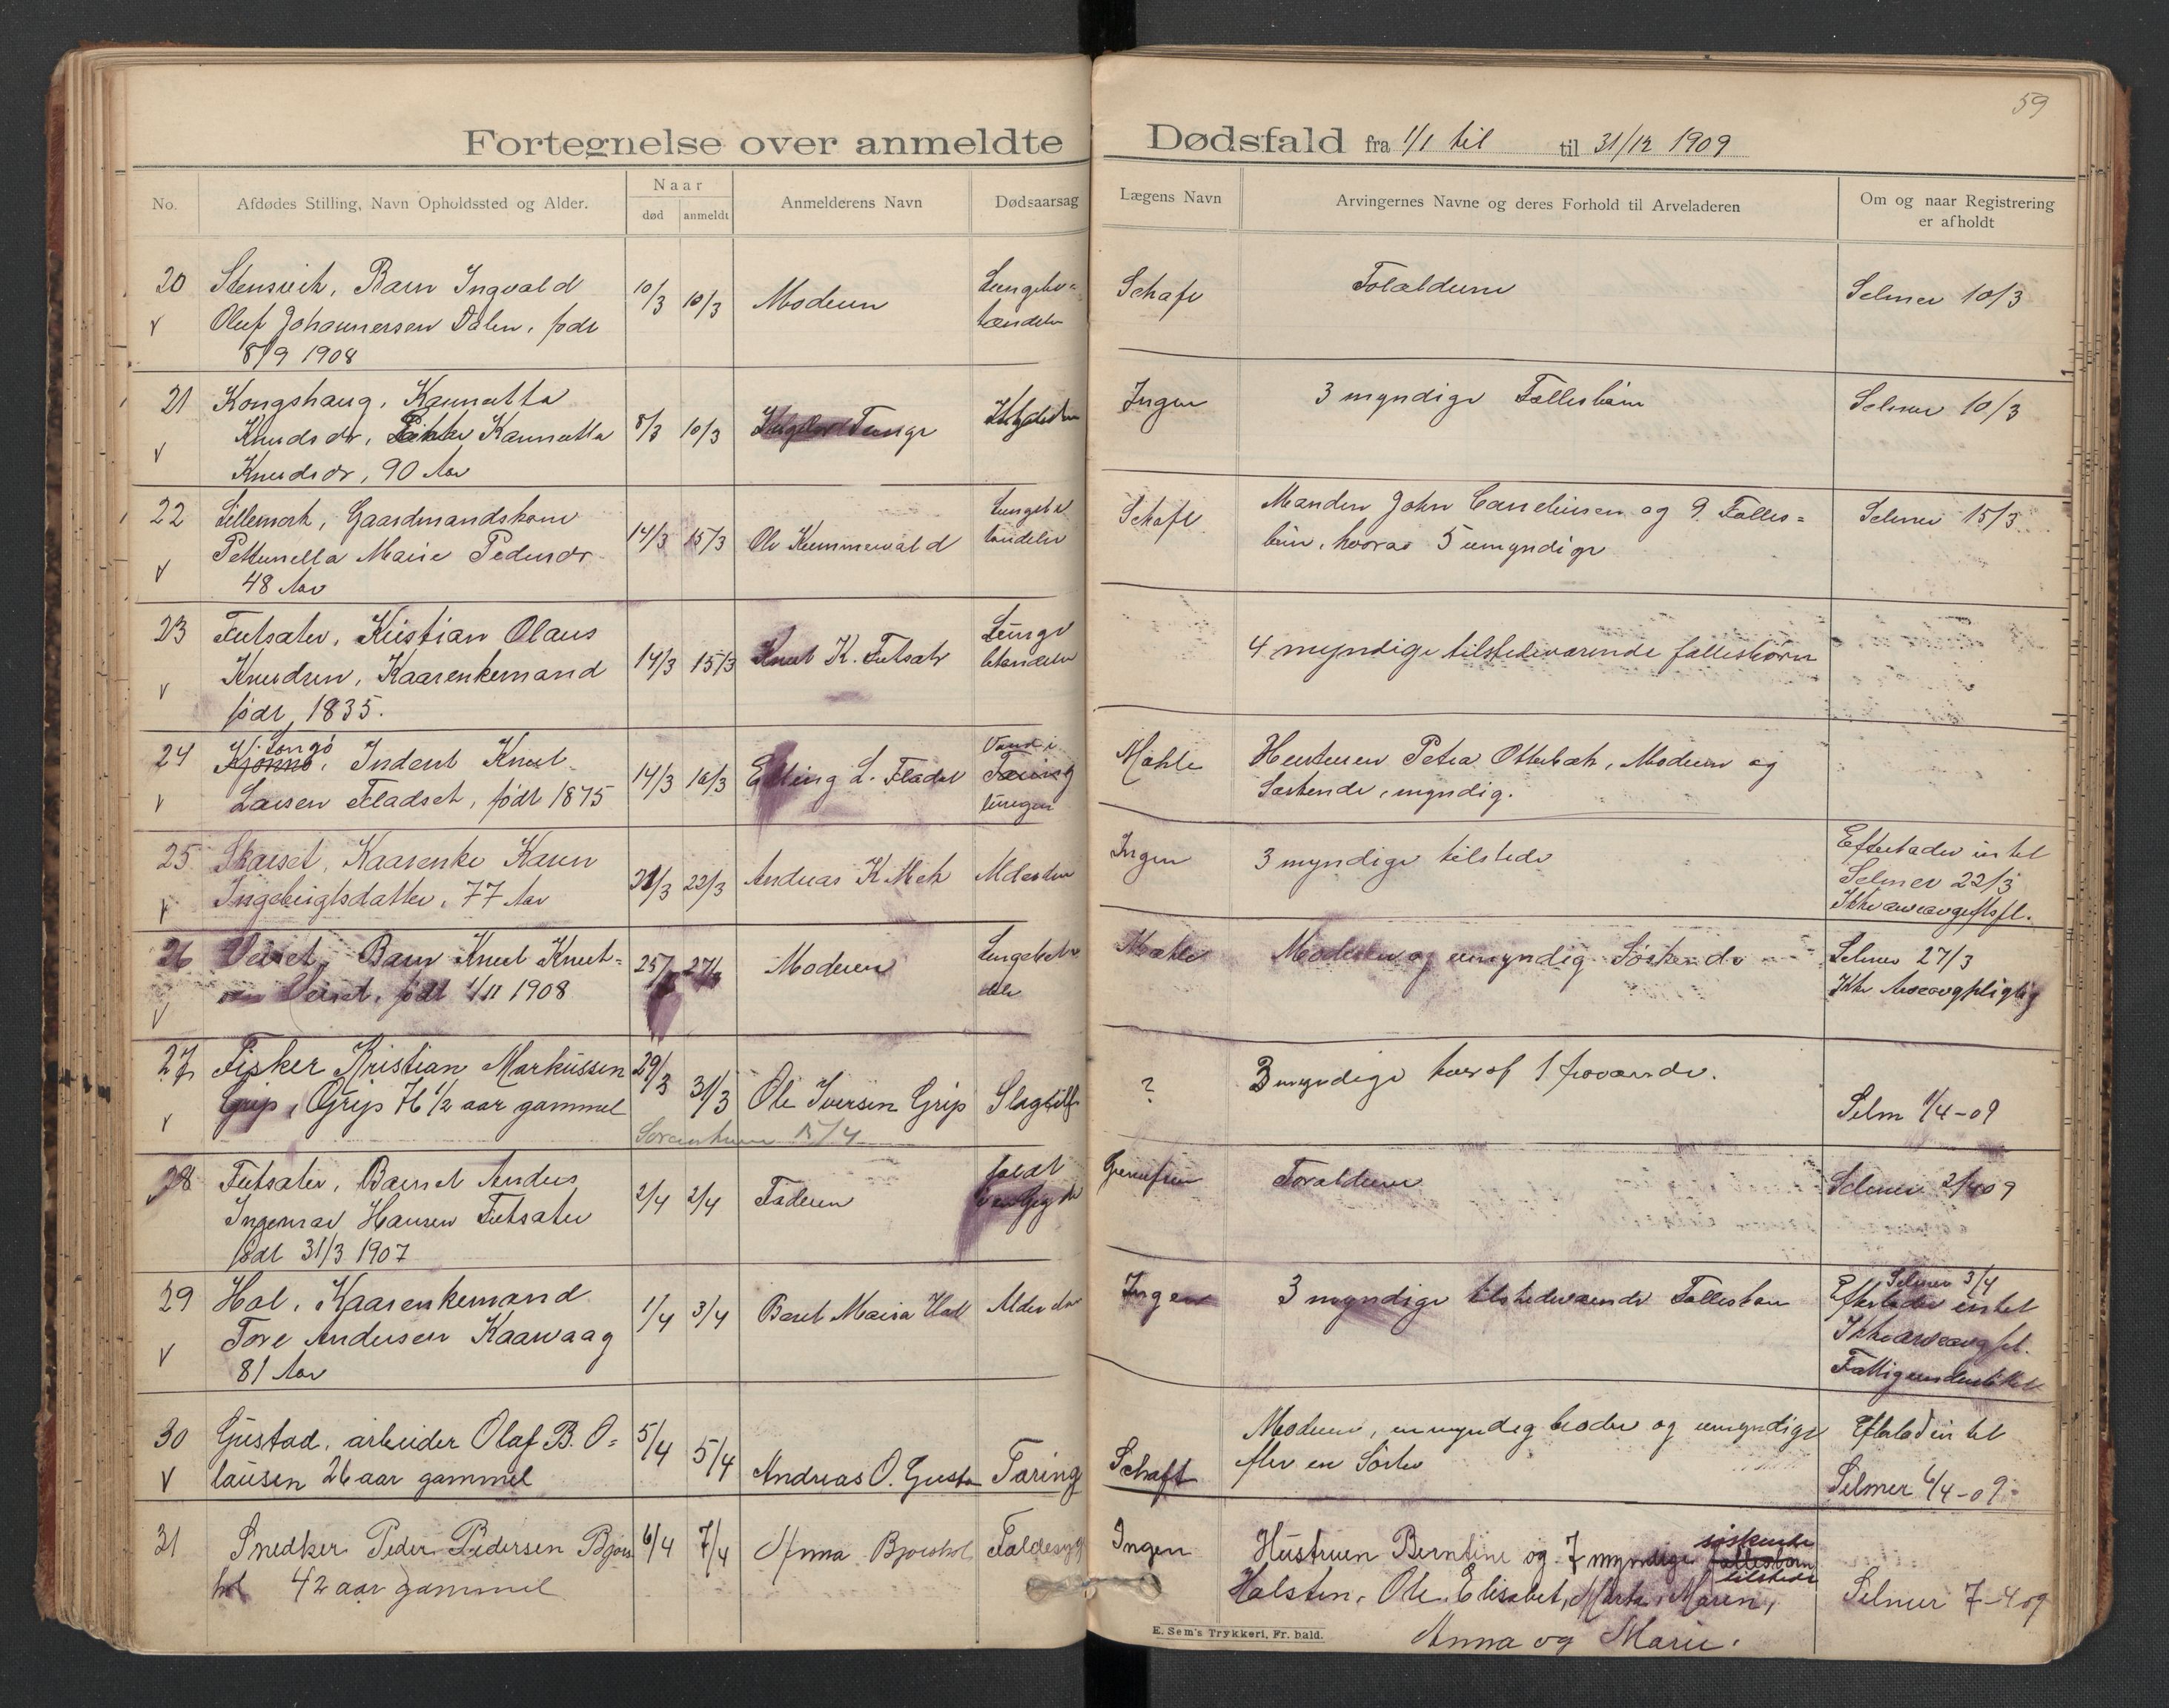 59
Fortegnelse over anmeldte Dødsfald fra 1/1 til til 31/12 1909
No.
Afdødes Stilling, Navn Opholdssted og Alder.
Naar
død
anmeldt
Anmelderens Navn
Dødsaarsag
Lægens Navn
Arvingernes Navne og deres Forhold til Arveladeren
Om og naar Registrering
er afholdt
20
Stensvik, Barn Ingvald
Oluf Johannesen Dalen, født
8/9 1908
10/3
10/3
Moderen
Lungebe-
tændelse
Schaft
Forældrene
Selmer 10/3
21
Kongshaug,
Knudsdr,
Knudsdr, 90 Aar
8/3
10/3
Ingen
3 myndige Fællesbørn
Selmer 10/3
22
Lillemork, Gaardmandskone
Petternella Marie Pedersdr
48 Aar
14/3
15/3
Ole Kummervold
Lungebe
tændelse
Schaft
Manden John og 9 Fælles=
børn, hvorav 5 umyndige
Selmer 15/3
23
Futsæter, Kristian Olaus
Knudsen, Kaarenkemand
født 1835.
14/3
15/3
Knut K. Futsæter
Lunge
betændelse
4 myndige tilstedeværende fællesbørn
24
Indent Knut
Larsen Fladset, født 1875
14/3
16/3
Elling L. Fladset
Vand i
lungen
Mæhle
Hustruen Petra Otterbæk, Moderen og
Søskende, myndig.
25
Skarset, Kaarenke Karen
Ingebrigtsdatter, 77 Aar
21/3
22/3
Andreas K Mek
Alderdom
Ingen
3 myndige tilstede
Efterlader intet
Selmer 22/3
Ikke arveavgiftspl.
26
Veiset, Barn Knut Knut=
sen Veiset, født 1/11 1908
25/3
27/3
Moderen
Lungebetæn
delse
Mæhle
Moderen og umyndig Søskende
Selmer 27/3
Ikke Arveavgpligtig
27
Fisker Kristian Markussen
Grip, Grip 76 1/2 aar gammel
29/3
31/3
Ole Iversen Grip
Slagtilf
?
3 myndige hvoraf 1 fraværende.
Selm 1/4-09
28
Futsæter, Barnet Anders
Ingemar Hansen Futsæter
født 31/3 1907
2/4
2/4
Faderen
Forældrene
Selmer 2/4 09
29
Hol, Kaarenkemand
Tore Andersen Kaarvaag
81 Aar
1/4
3/4
Beret Maria Hol
Alderdom
Ingen
3 myndige tilstedeværende Fællesbørn
Selmer 3/4
Efterlader intet
Ikke arveavgpl.
Fattigunderstøttet
30
Gustad, arbeider Olaf B. O=
lausen 26 aar gammel
5/4
5/4
Andreas O. Gusta
Tæring
Schaft
Moderen, en myndig broder og umyndige
fler en Søster
Efterlad intet
Selmer 6/4-09
31
Snedker Peder Pedersen Bjøis
hol 42 aar gammel
6/4
7/4
Anna Bjøishol
Faldesyg
Ingen
Hustruen Berntine og 7 myndige fællesbørn søskende
tilstede
Halsten, Ole, Elisabet, Marta, Maren,
Anna og Marie.
Selmer 7-4 09
E. Sem's Trykkeri, Fr. hald.